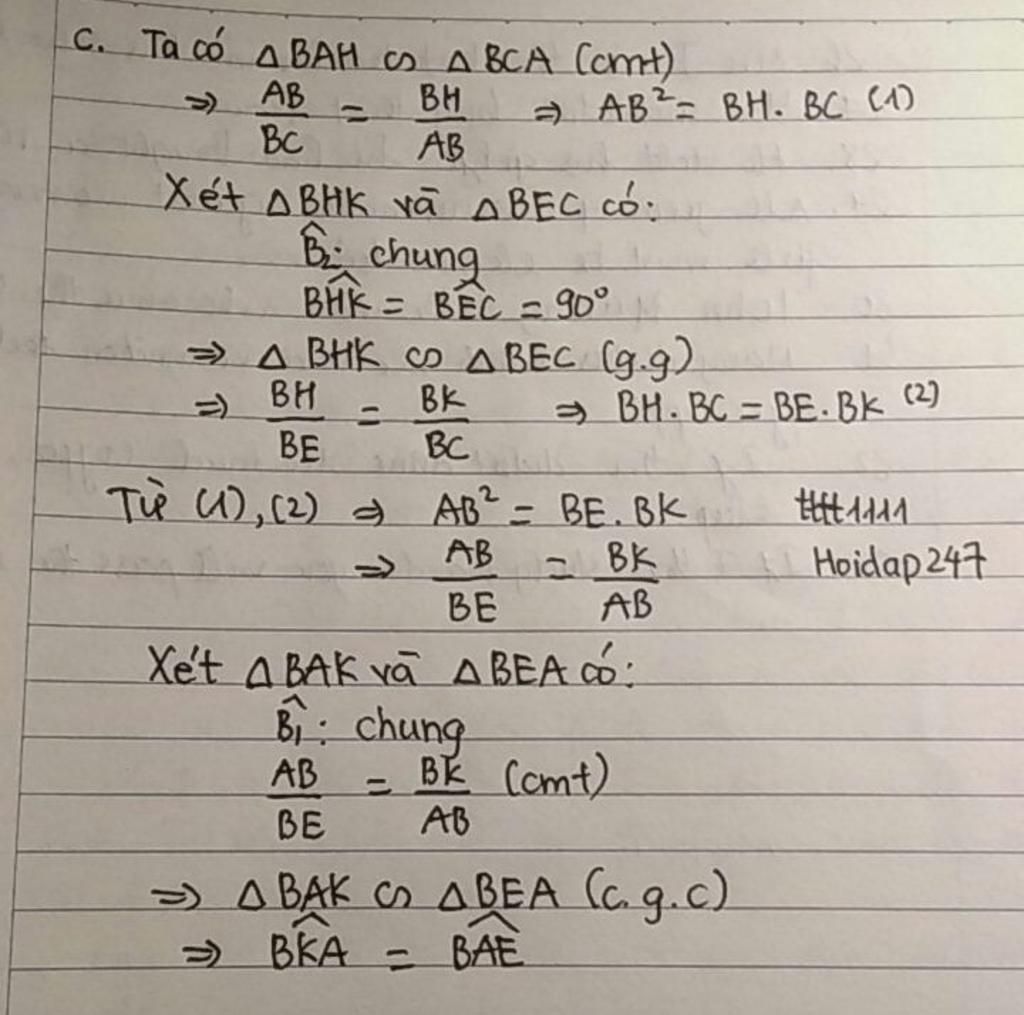 c. Ta có △BAH ∽ △BCA (cmt)
⇒ AB/BC = BH/AB ⇒ AB² = BH. BC (1)
Xét △BHK và △BEC có:
B̂₂: chung
BĤK = BÊC = 90°
⇒ △ BHK ∽ △BEC (g.g)
⇒ BH/BE = BK/BC ⇒ BH.BC = BE.BK (2)
Từ (1), (2) ⇒ AB² = BE. BK ttt1111
⇒ AB/BE = BK/AB Hoidap247
Xét △BAK và △BEA có:
B̂₁: chung
AB/BE = BK/AB (cmt)
⇒ △BAK ∽ △BEA (c.g.c)
⇒ BK̂A = BÂE